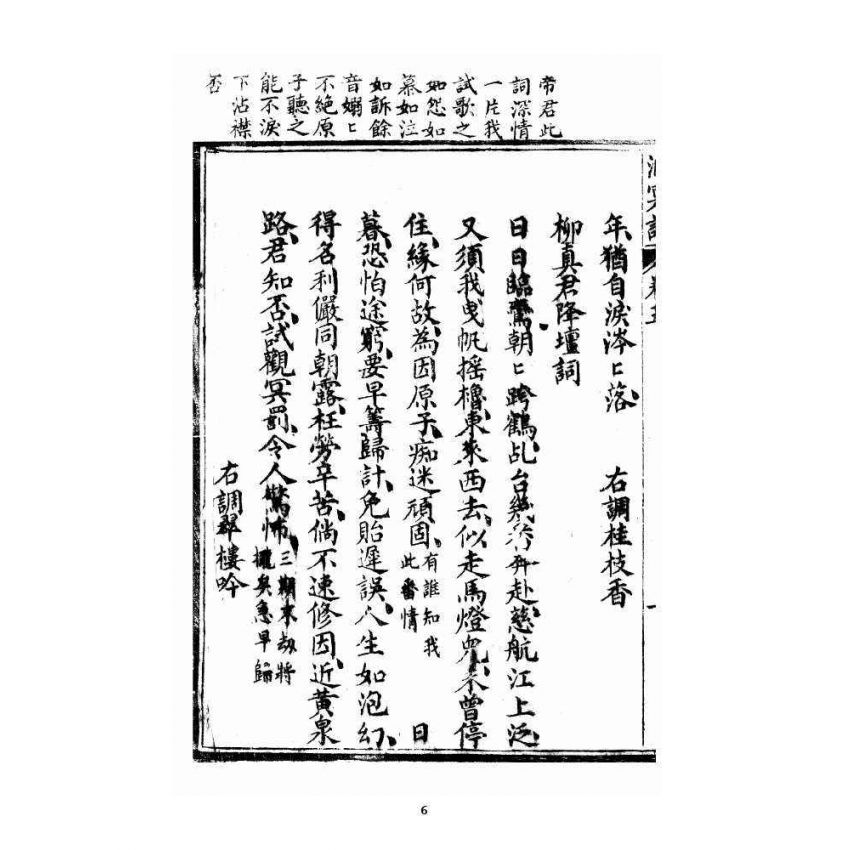 帝君此
詞深情
一片我
試歌之
如怨如
慕如泣
如訴餘
音嫋匕
不絕原
子聽之
能不淚
下沾襟
否
洞冥記 卷五
年、猶自淚涔匕落、 右調桂枝香
柳真君降壇詞
日日臨鸞、朝匕跨鶴、乩台幾番奔赴、慈航江上泛、
又須我曳帆搖櫓、東來西去、似走馬燈兒、未曾停
住、緣何故、為因原子、痴迷頑固、有誰知我此番情 日
暮、恐怕途窮、要早籌歸計、免貽遲誤、人生如泡幻、
得名利儼同朝露、枉勞辛苦、倘不速修因、近黃泉
路、君知否、試觀冥罰、令人驚怖、三期末劫將攏矣急早歸
右調翠樓吟
6